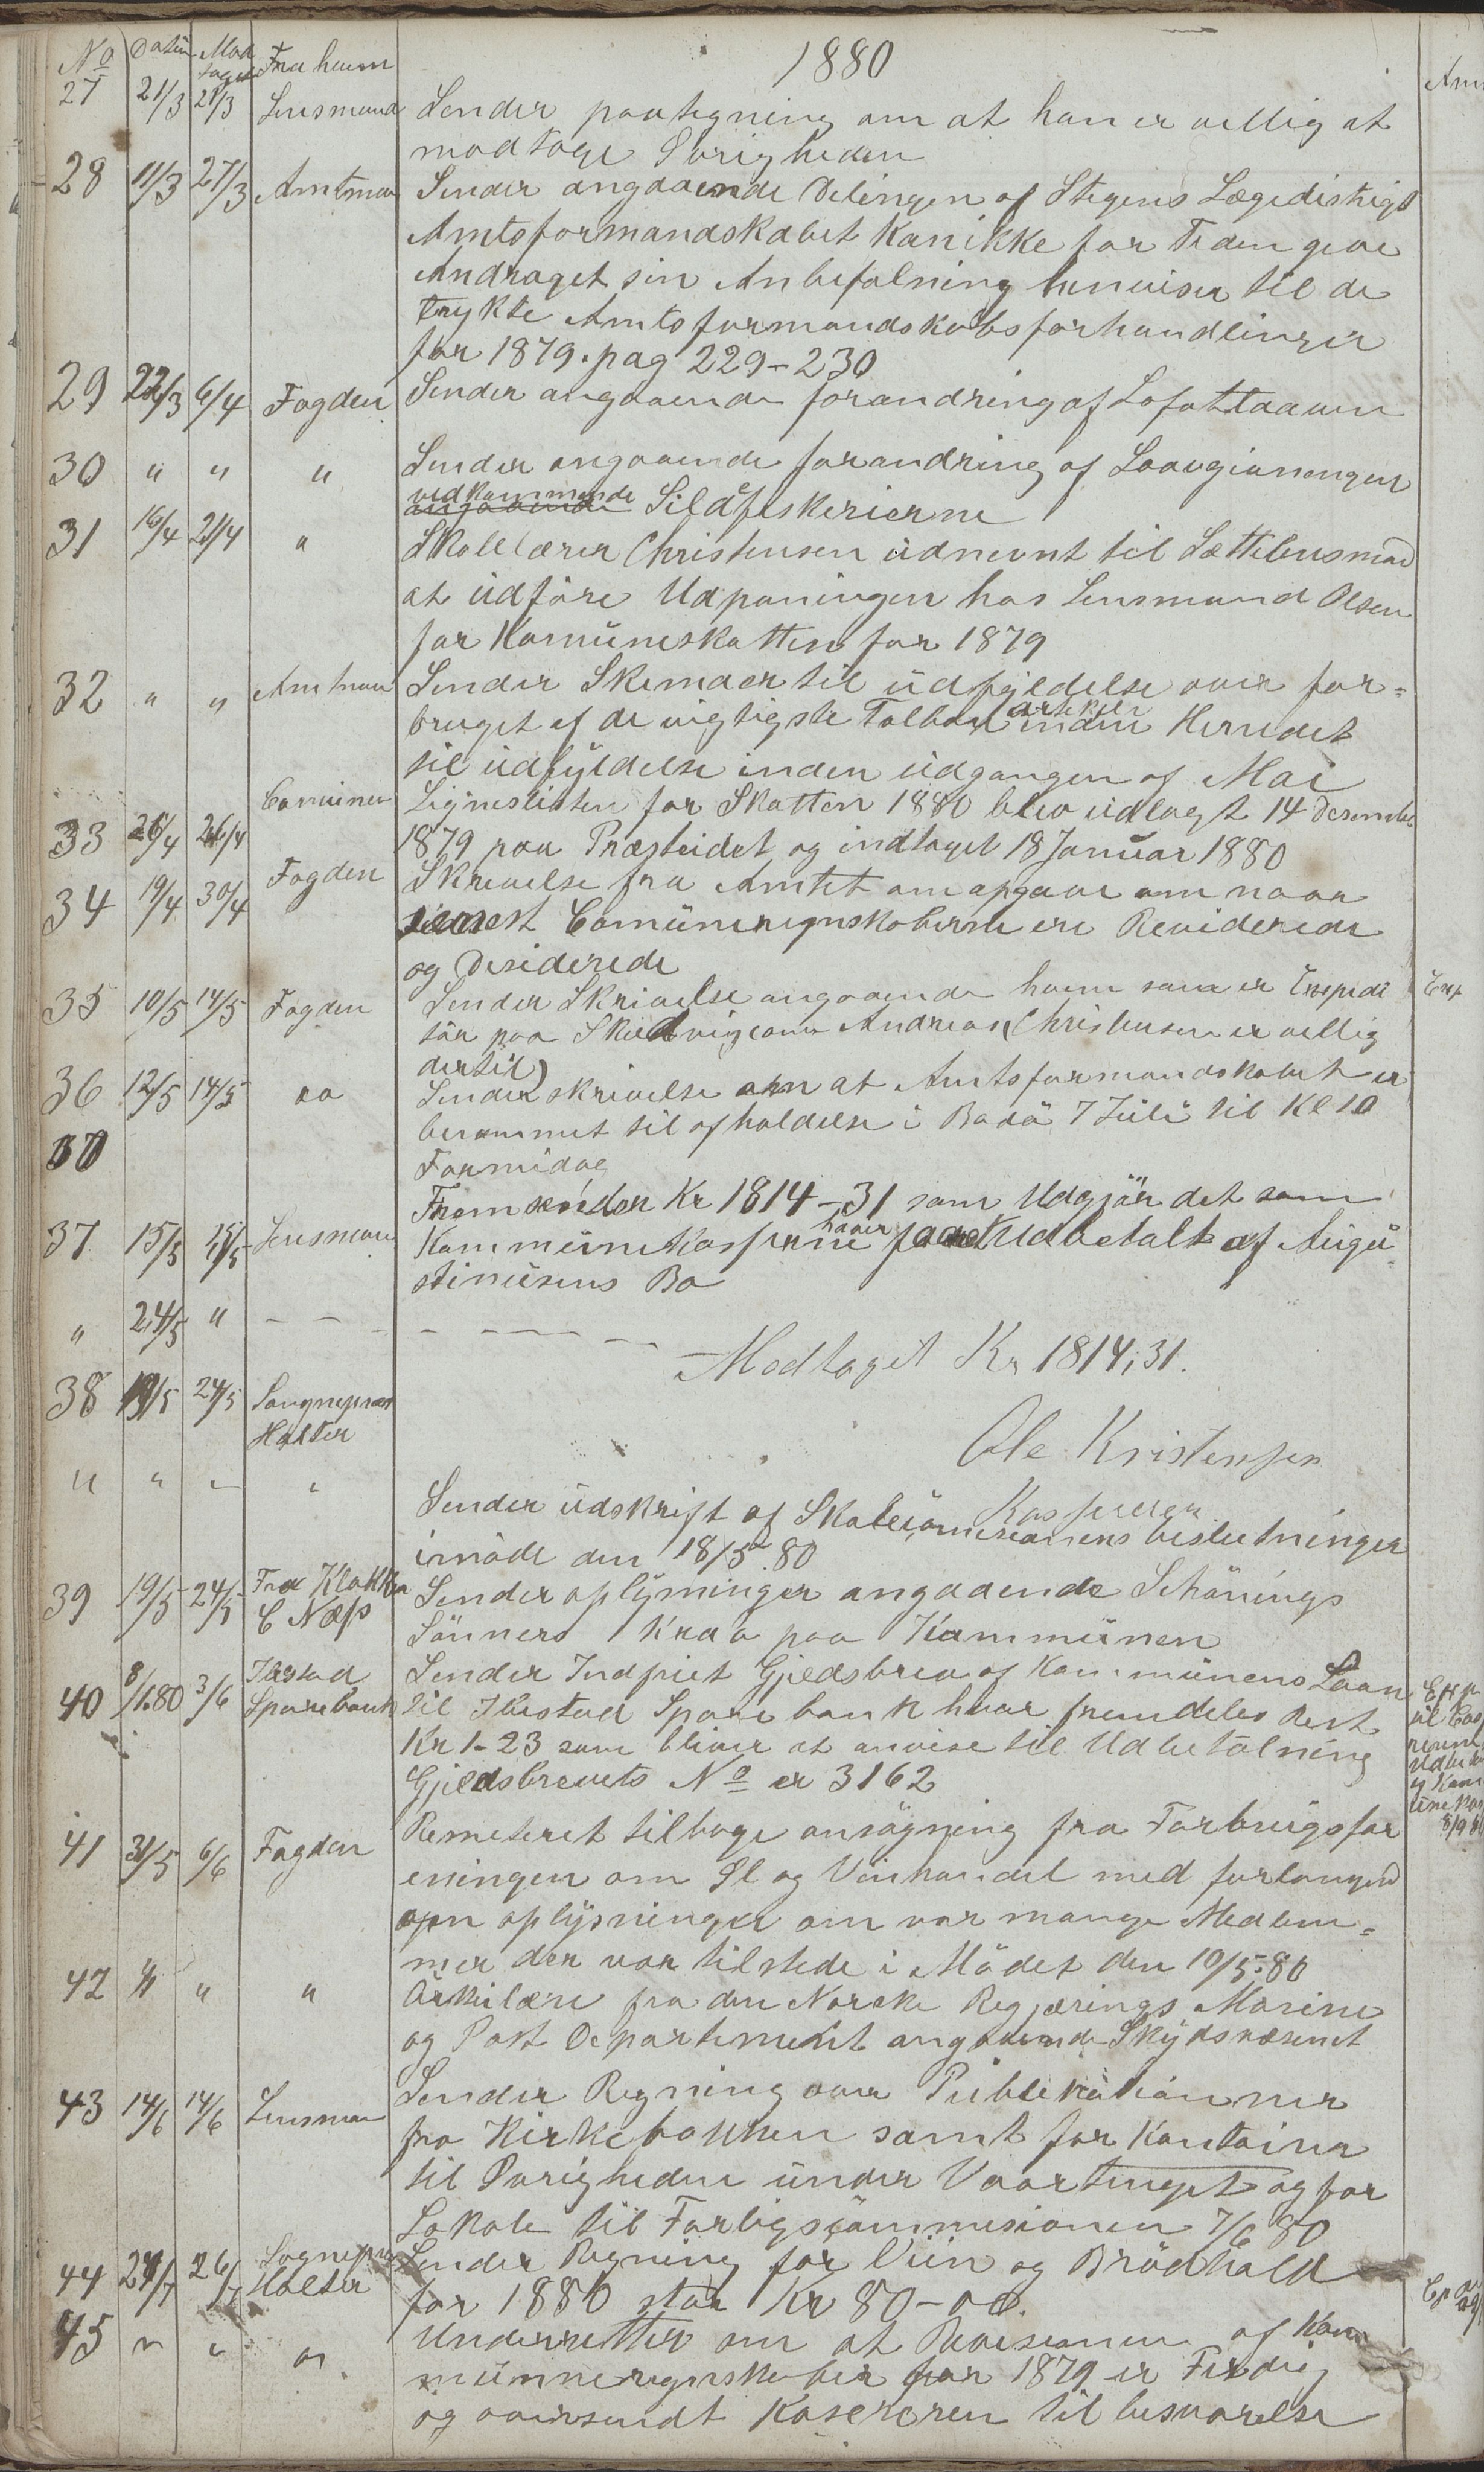 1880
No Datum Modtaget Fra hvem
27 21/3 21/3 Lensmand Sender paategning om at han er villig at
modtage Övrigheden
28 11/3 27/3 Amtman Sender angaaende Delingen af Stegens Lægedistrigt
Amtsformandskabet kan ikke for Tiden give
Andraget sin Anbefalning henviser til de
trykte Amtsformandskabsforhandlinger
for 1879. pag 229-230
29 22/3 6/4 Fogden Sender angaaende forandring af Lofotlaaven
30 " " " Sender angaaende forandring af Laavgivnengen
vedkommende
angaaende Sildefeskerierne
31 16/4 21/4 " Skollærer Christensen udnevnt til Sættelensmand
at udføre Udpaningen hos Lensmand Olsen
for Komuneskatten for 1879
32 " " Amtman Sender Skemaer til udfyldelse over for=
bruget af de vigtigste Tolbare artikeler inden Herredet
til udfyldelse inden udgangen af Mai
33 26/4 26/4 Comunen Ligneslisten for Skatten 1880 blev udlagt 14 Desember
1879 paa Præsteidet og indtaget 18 Januar 1880
34 19/4 30/4 Fogden Skrivelse fra Amtet om opgave om naar
senest Comuneregnskaberne ere Reviderede
og Desiderede
35 10/5 14/5 Fogden Sender Skrivelse angaaende hvem som er Exspedi
tør paa Skudvig om Andreas Christensen er villig
dertil)
36 12/5 14/5 " Sender skrivelse om at Amtsformandskabet er
berammet til afholdelse i Bodø 7 Juli til Kl 10
Formidag
37 15/5 15/5 Lensman Fremsender Kr 1814-31 som Udgjør det som
Kommunekasserne haver faaet Udbetalt af Augu
stinusens Bo
" 24/5 " - - - - - -
Modtaget Kr 1814,31.
Ole Kristensen
Kasserer
38 19/5 24/5 Sougnepræst
Holter
" " " " Sender udskrift af Skolecomisionens beslutninger
imøde den 18/5 80
39 19/5 24/5 Fra Klokker
C Næss Sender oplysninger angaaende Schönings
Sønners Krav paa Kommunen
40 8/1.80 3/6 Ibestad
Sparebank Sender Indfriet Gjeldsbrev af Kommunens Laan
til Ibestad Sparebank hvor fremdeles Rest
Kr 1-23 som bliver at anvise til Udbetalning
Gjeldsbrevets No er 3162
41 31/5 6/6 Fogden Remiteret tilbage ansøgning fra Forbrugsfor
eningen om Øl og Vinhandel med forlangend
om oplysninger om vor mange Medlem=
mer der var tilstede i Mødet den 10/5.80
42 " " " Cirkulære fra den Norske Regjerings Marine
og Post Departement angaaende Skydsvæsenet
43 14/6 14/6 Lensman Sender Regning over Publikationner
fra Kirkebakken samt for Kontoirer
til Øvrigheden under Vaartinget og for
Lokale til Forligscommisionen 7/6 80
44 24/7 26/7 Sognepræst
Holter Sender Regning for Viin og Brødhold
for 1880 stor Kr 80-00.
45 " " " Underretter om at Revisionen af Kom
munneregnskaber for 1879 er Ferdig
og oversendt Kasereren til besvarelse